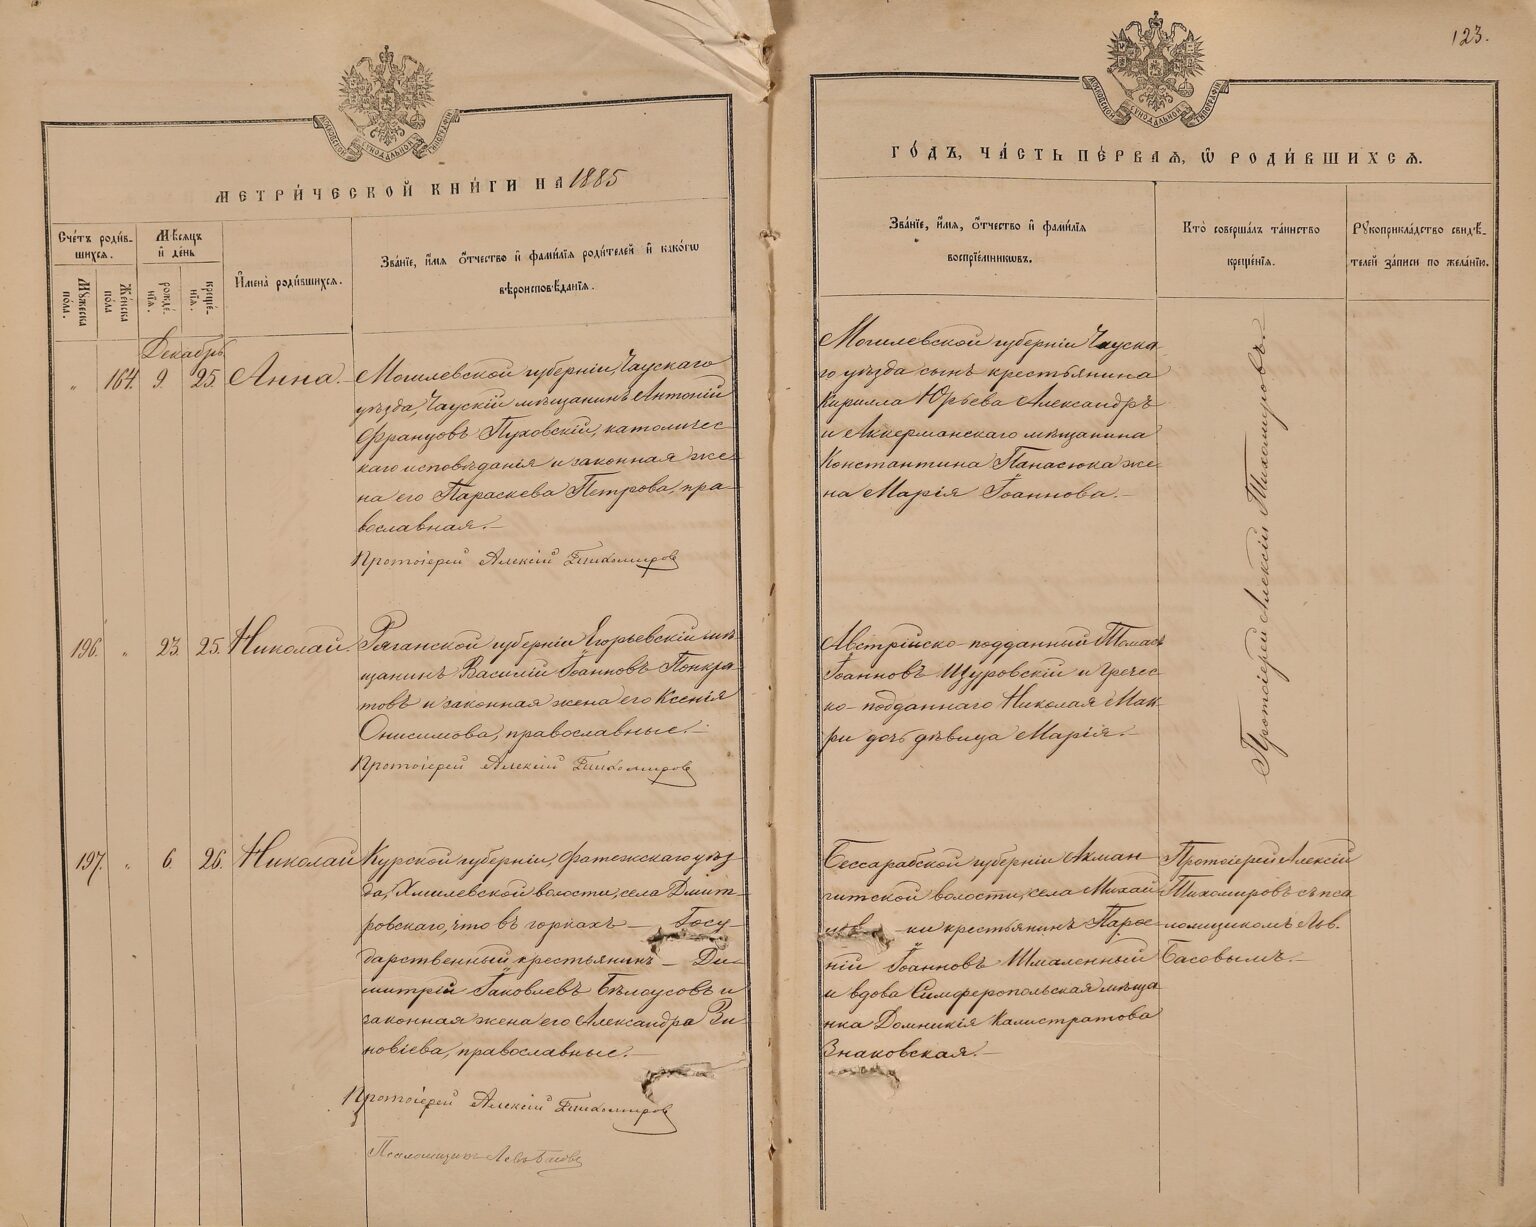 123.
МОСКОВСКОЙ СѴНОДАЛЬНОЙ ТИПОГРАФІИ
МЕТРИ́ЧЕСКОЙ КНИ́ГИ НА 1885
Сче́тъ роди́в-
шихся.
Мѣсяцъ
и҆ де́нь
Му́жеска
по́ла.
Же́нска
по́ла
рожде́-
нїя.
креще́-
нїя.
И҆мена̀ роди́вшихся.
Зва́нїе, и҆́мя ѻ҆́тчество и҆ фами́лїѧ роди́телей и҆ како́гѡ
вѣроисповѣ́данїѧ.
Декабрь
„ 164. 9. 25. Анна.
Могилевской губерніи, Чаускаго
уѣзда, Чаускій мѣщанинъ Антоній
Францовъ Пуховскій, католичес-
каго исповѣданія и законная же-
на его Параскева Петрова, пра-
вославная.—
Протоіерей Алексій Тихомировъ
196. „ 23. 25. Николай.
Рязанской губерніи Егорьевскій мѣ-
щанинъ Василій Іоанновъ Понкра-
товъ и законная жена его Ксенія
Онисимова, православные.—
Протоіерей Алексій Тихомировъ
197. „ 6 26. Николай
Курской губерніи, Фатежскаго уѣз-
да, Хмилевской волости, села Дмит-
ровскаго, что въ горкахъ — Госу-
дарственный крестьянинъ — Ди-
митрій Іаковлевъ Бѣлоусовъ и
законная жена его Александра Зи-
новіева, православные.—
Протоіерей Алексій Тихомировъ
Псаломщикъ Левъ Басовъ
МОСКОВСКОЙ СѴНОДАЛЬНОЙ ТИПОГРАФІИ
ГО́ДЪ, ЧА́СТЬ ПЕ́РВАЯ, Ѡ҆ РОДИ́ВШИХСЯ.
Зва́нїе, и҆́мя, ѻ҆́тчество и҆ фами́лїя
воспрїе́мникѡвъ.
Кто̀ соверша́лъ та́инство
креще́нїя.
Рꙋкоприкла́дство свидѣ́-
телей за́писи по жела́нїю.
Могилевской губерніи Чауска-
го уѣзда сынъ крестьянина
Кирилла Юрьева Александръ
и Аккерманскаго мѣщанина
Константина Панасюка же-
на Марія Іоаннова.—
Протоіерей Алексій Тихомировъ.—
Австрійско-подданный Томасъ
Іоанновъ Щуровскій и гречес-
ко-подданнаго Николая Мак-
ри дочь дѣвица Марія.—
Бессарабской губерніи Акман-
гитской волости, села Михай
ки крестьянинъ Паро-
ній Іоанновъ Шмаленный
и вдова Симферопольская мѣща
нка Домникія Калистратова
Знаковская.—
Протоіерей Алексій
Тихомировъ съ пса
ломщикомъ Льв.
Басовымъ.—